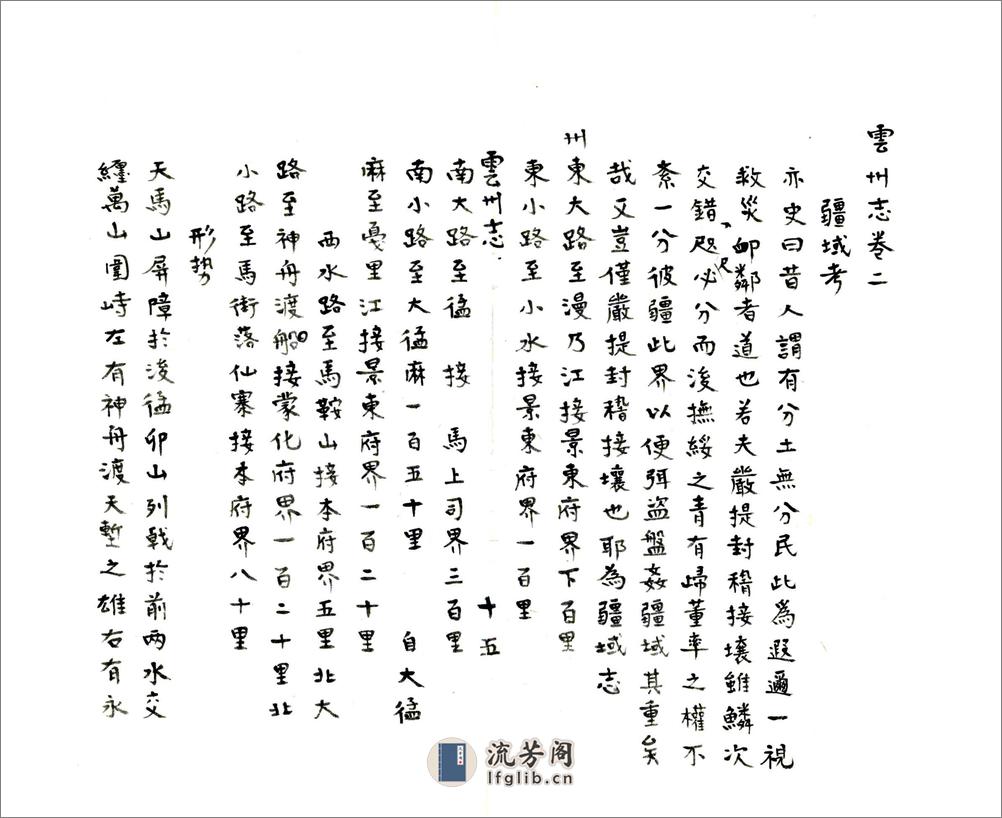 雲州志卷二
疆域考
亦史曰昔人謂有分土無分民此爲遐邇一視
救災卹鄰者道也若夫嚴提封稽接壤雖鱗次
交錯咫尺必分而後撫綏之青有歸董率之權不
紊一分彼疆此界以便弭盜盤姦疆域其重矣
哉又豈僅嚴提封稽接壤也耶為疆域志
州東大路至漫乃江接景東府界下百里
東小路至小水接景東府界一百里
雲州志 十五
南大路至猛 接 馬上司界三百里
南小路至大猛麻一百五十里 自大猛
麻至戞里江接景東府界一百二十里
西水路至馬鞍山接本府界五里北大
路至神舟渡船接蒙化府界一百二十里北
小路至馬街落仙寨接本府界八十里
形勢
天馬山屏障於後猛卯山列戟於前兩水交
纏萬山圍峙左有神舟渡天塹之雄右有永
流芳阁
lfglib.cn